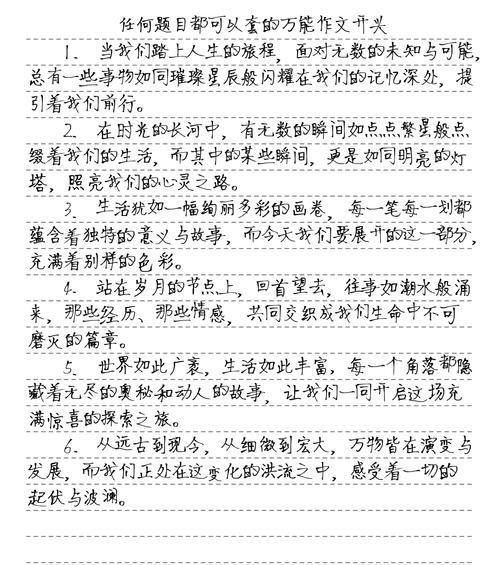 任何题目都可以套的万能作文开头
1、当我们踏上人生的旅程，面对无数的未知与可能，
总有一些事物如同璀璨星辰般闪耀在我们的记忆深处，提
引着我们前行。
2、在时光的长河中，有无数的瞬间如点点繁星般点
缀着我们的生活，而其中的某些瞬间，更是如同明亮的灯
塔，照亮我们的心灵之路。
3、生活犹如一幅绚丽多彩的画卷，每一笔每一划都
蕴含着独特的意义与故事，而今天我们要展开的这一部分，
充满着别样的色彩。
4、站在岁月的节点上，回首望去，往事如潮水般涌
来，那些经历、那些情感，共同交织成我们生命中不可
磨灭的篇章。
5、世界如此广袤，生活如此丰富，每一个角落都隐
藏着无尽的奥秘和动人的故事，让我们一同开启这场充
满惊喜的探索之旅。
6、从远古到现今，从细微到宏大，万物皆在演变与
发展，而我们正处在这变化的洪流之中，感受着一切的
起伏与波澜。